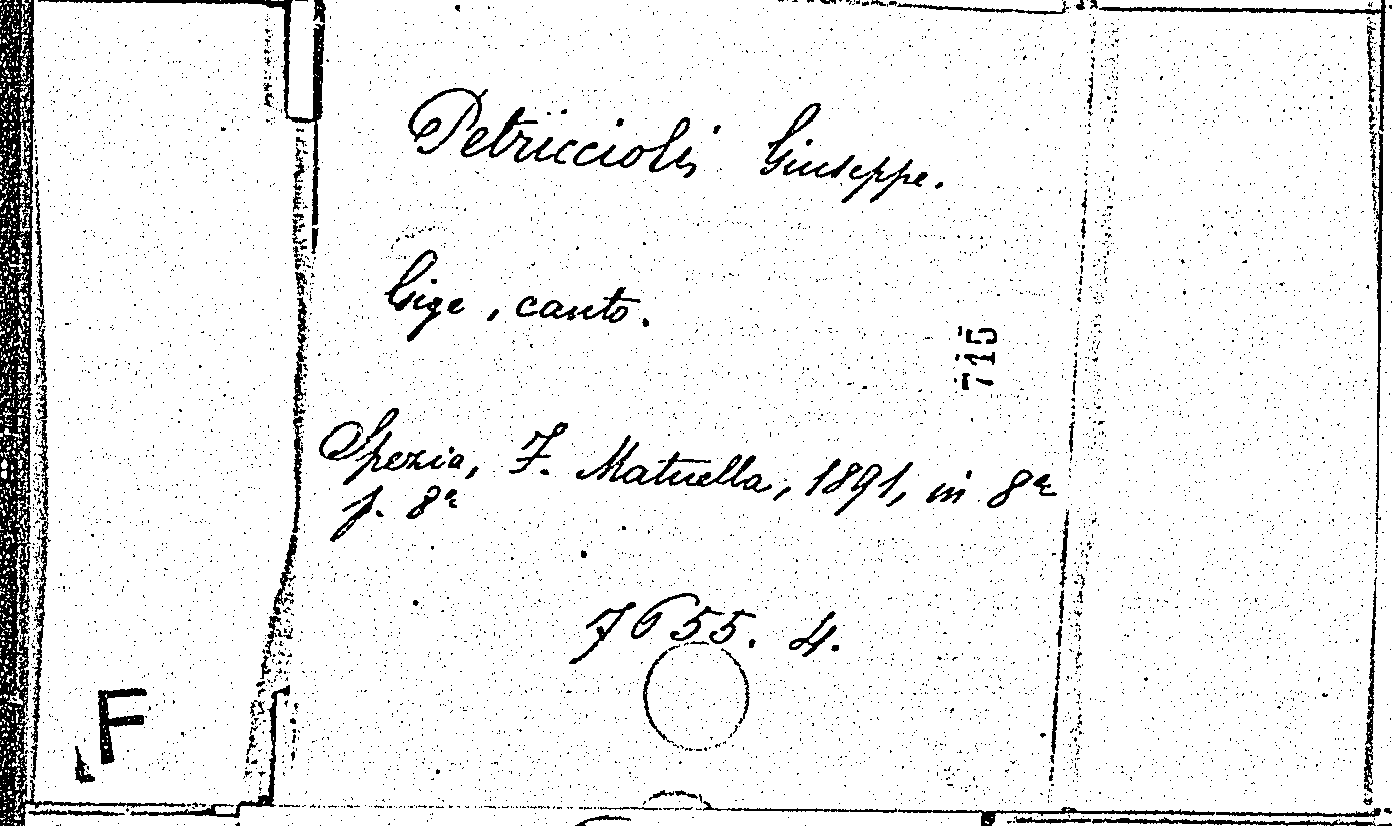 Petriccioli Giuseppe.
Gige, canto.
715
Spezia, F. Matuella, 1891, in 8ª
p. 8ª
7655. 4.
F